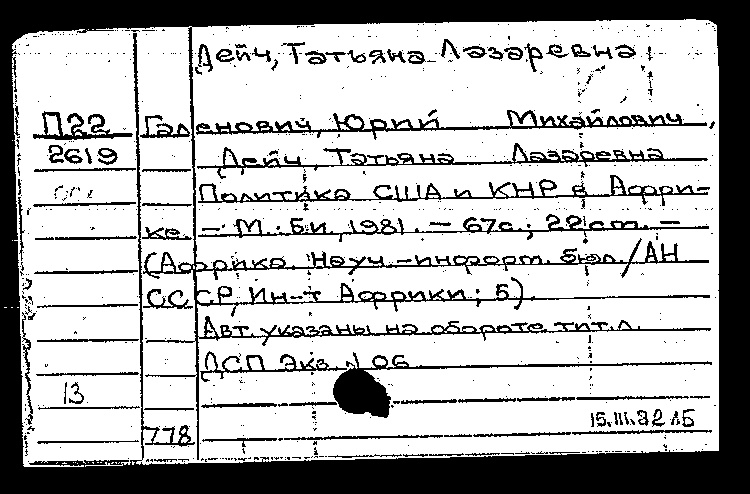 Дейч, Татьяна Лазаревна
П22 Галенович, Юрий Михайлович,
2619 Дейч, Татьяна Лазаревна
Политика США и КНР в Афри-
ке. — М.: Би, 1981. — 67с.; 22 cm. —
(Африка. Науч.-информ. бюл./АН
СССР, Ин-т Африки; 5).
Авт. указаны на обороте тит.л.
ДСП Экз. N 06
13
778
15.III.82 ЛБ